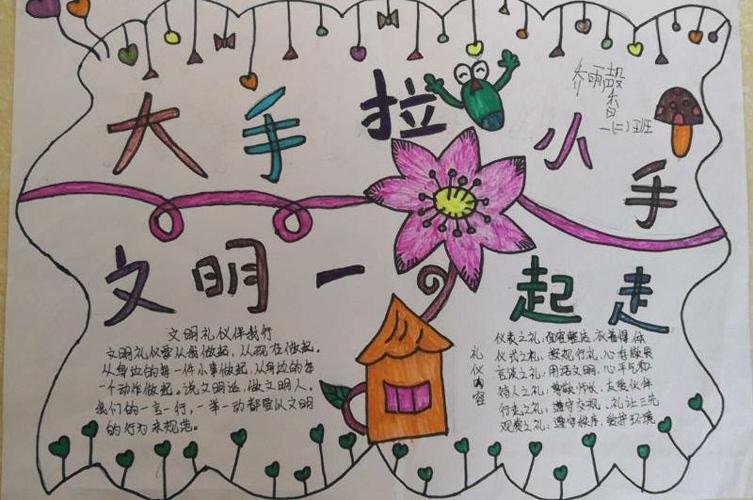 大手拉小手
乔雨馨
一(二)班
文明一起走
文明礼仪伴我行
文明礼仪要从我做起，从现在做起。
从身边的每一件小事做起，从身边的每
一个动作做起。说文明话，做文明人，
我们的一言一行，一举一动都要以文明
的行为来规范。
礼仪内容
仪表之礼：面容整洁 衣着得体
仪式之礼：按规行礼，心存敬畏
言谈之礼：用语文明，心平气和
待人之礼：尊敬师长，友爱伙伴
行走之礼：遵守交规，礼让三先
观赏之礼：遵守秩序，爱护环境